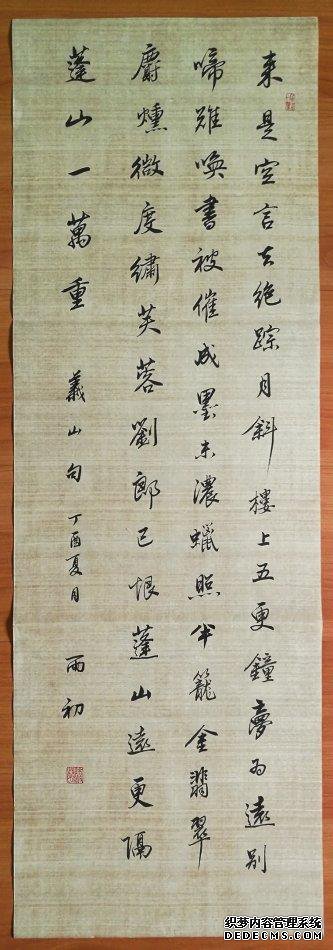 来是空言去絶踪月斜樓上五更鐘夢为遠别
啼難喚書被催成墨未濃蠟照半籠金翡翠
麝燻微度繡芙蓉劉郎已恨蓬山遠更隔
蓬山一萬重 義山句 丁酉夏月 雨初
织梦内容管理系统
DEDECMS.COM